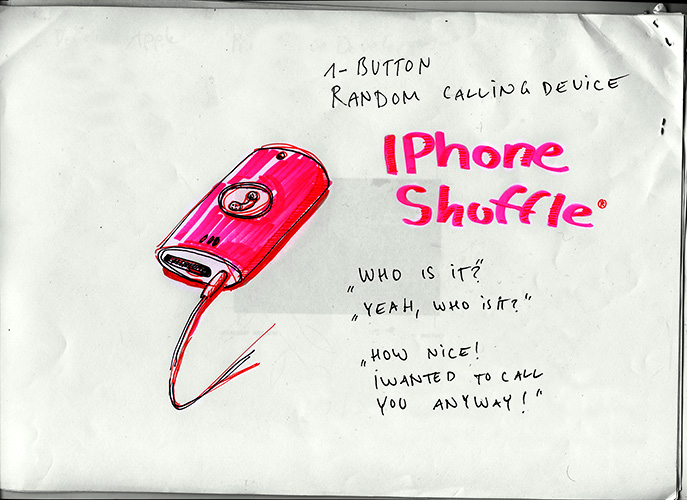 1-BUTTON
RANDOM CALLING DEVICE
IPhone
Shuffle®
„WHO IS IT?“
„YEAH, WHO IS IT?“
„HOW NICE!
I WANTED TO CALL
YOU ANYWAY!“